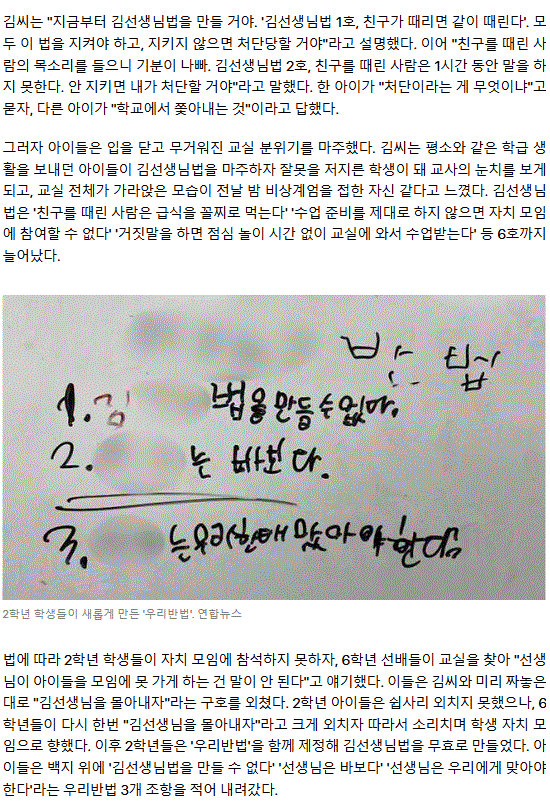 김씨는 "지금부터 김선생님법을 만들 거야. '김선생님법 1호, 친구가 때리면 같이 때린다'. 모
두 이 법을 지켜야 하고, 지키지 않으면 처단당할 거야"라고 설명했다. 이어 "친구를 때린 사
람의 목소리를 들으니 기분이 나빠. 김선생님법 2호, 친구를 때린 사람은 1시간 동안 말을 하
지 못한다. 안 지키면 내가 처단할 거야"라고 말했다. 한 아이가 "처단이라는 게 무엇이냐"고
묻자, 다른 아이가 "학교에서 쫓아내는 것"이라고 답했다.
그러자 아이들은 입을 닫고 무거워진 교실 분위기를 마주했다. 김씨는 평소와 같은 학급 생
활을 보내던 아이들이 김선생님법을 마주하자 잘못을 저지른 학생이 돼 교사의 눈치를 보게
되고, 교실 전체가 가라앉은 모습이 전날 밤 비상계엄을 접한 자신 같다고 느꼈다. 김선생님
법은 '친구를 때린 사람은 급식을 꼴찌로 먹는다' '수업 준비를 제대로 하지 않으면 자치 모임
에 참여할 수 없다' '거짓말을 하면 점심 놀이 시간 없이 교실에 와서 수업받는다' 등 6호까지
늘어났다.
법
1. 김 법을만들수없다.
2. 는 바보다.
3. 는우리한테 맞아야한다
2학년 학생들이 새롭게 만든 '우리반법'. 연합뉴스
법에 따라 2학년 학생들이 자치 모임에 참석하지 못하자, 6학년 선배들이 교실을 찾아 "선생
님이 아이들을 모임에 못 가게 하는 건 말이 안 된다"고 얘기했다. 이들은 김씨와 미리 짜놓은
대로 "김선생님을 몰아내자"라는 구호를 외쳤다. 2학년 아이들은 쉽사리 외치지 못했으나, 6
학년들이 다시 한번 "김선생님을 몰아내자"라고 크게 외치자 따라서 소리치며 학생 자치 모
임으로 향했다. 이후 2학년들은 '우리반법'을 함께 제정해 김선생님법을 무효로 만들었다. 아
이들은 백지 위에 '김선생님법을 만들 수 없다' '선생님은 바보다' '선생님은 우리에게 맞아야
한다'라는 우리반법 3개 조항을 적어 내려갔다.